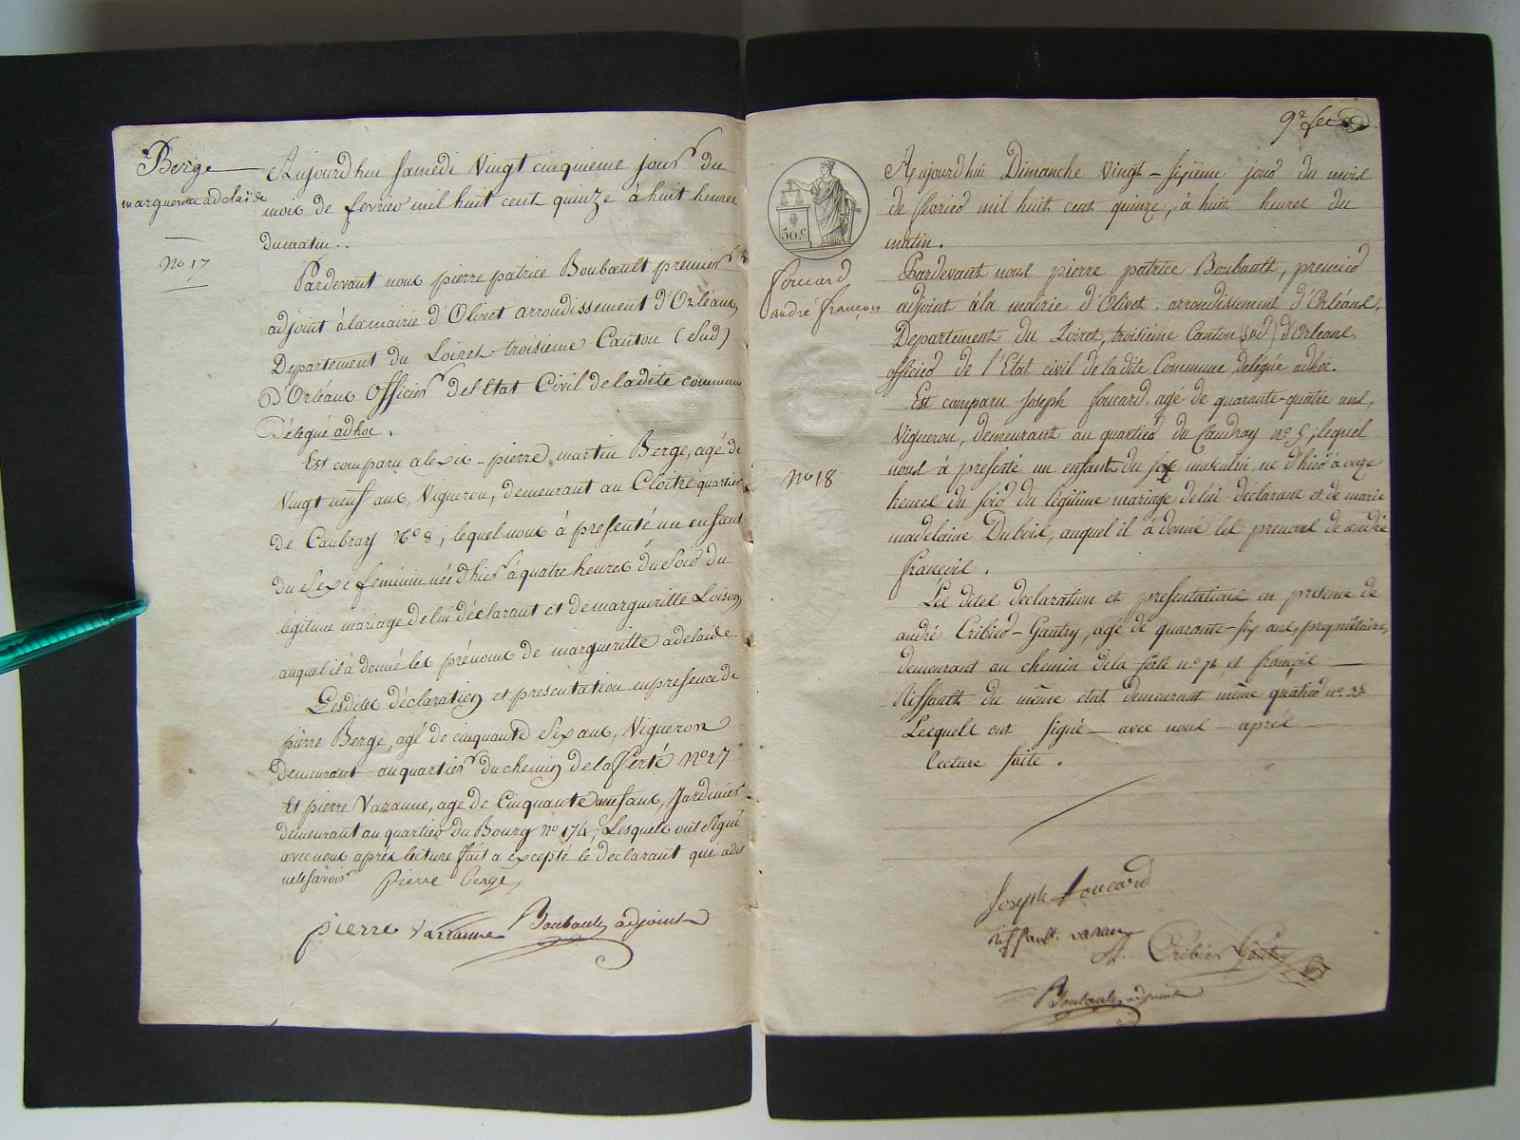 Berge
marguerite adelaide
No 17
Aujourdhui Samedi Vingt cinquieme jour du
mois de fevrier mil huit cent quinze à huit heures
du matin..
Pardevant nous pierre patrice Boubault premier
adjoint à la mairie d'Olivet arrondissement d'Orléans,
Departement du Loiret troisieme Canton (Sud)
D'Orléans Officier del'Etat Civil de la dite commune
Délégué adhoc.
Est comparu alexis-pierre martin Berge, agé de
Vingt neuf ans, Vigneron, demeurant au Cloitre quartier
de Caubray No 8, lequel nous à presenté un enfant
du Sexe feminin née d'hier à quatre heures du Soir du
légitime mariage de lui déclarant et de marguerille Loison,
auquel il à donné les prénoms de marguerille adelaide.
Lesdites déclaration et presentation en presence de
pierre Berge, agé de cinquante Six ans, Vigneron
Demeurant au quartier du chemin de la Ferté No 27
Et pierre Vazanne, age de Cinquante neuf ans, Jardinier
demeurant au quartier du Bourg no 174, Lesquels ont Signé
avec nous après lecture fait a excepté le declarant qui a dit
ne le Savoir
Pierre Berge,
pierre Vazanne Boubault, adjoint
9e
50.c
foucard
andré françois
No 18
Aujourdhui Dimanche Vingt-sixieme jour du mois
de fevrier mil huit cent quinze, à huit heures du
matin.
Pardevant nous pierre patrice Boubault, premier
adjoint à la mairie d'Olivet arrondissement d'Orléans,
Departement du Loiret, troisieme Canton (Sud) d'Orleans
officier de l'Etat civil de la dite Commune, délégué adhoc.
Est comparu Joseph foucard, agé de quarante-quatre ans,
Vigneron, demeurant au quartier du Caudray no 5, lequel
nous à presenté un enfant du sexe masculin, né d'hier à onze
heures du soir du légitime mariage de lui déclarant et de marie
madelaine Dubois, auquel il à donné les prenoms de andré
françois.
Les dites declaration et presentation en presence de
andré Cribier-Gautry, agé de quarante-six ans, propriétaire,
demeurant au chemin de la ferté no 74 et françois
Riffault du même etat demeurant même quartier no 33
Lesquels ont signé avec nous après
lecture faite.
Joseph foucard
riffault
Cribier Gautry
Boubault, adjoint